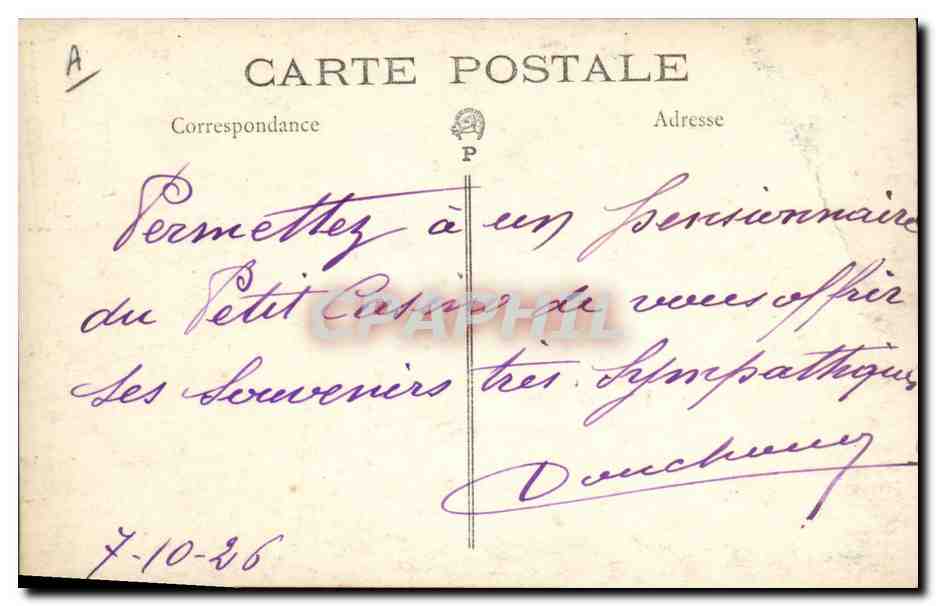 A
CARTE POSTALE
Correspondance
Adresse
P
Permettez à un pensionnaire
du Petit Casino de vous offrir
ses souvenirs très sympathiques
7-10-26
CPAPHIL